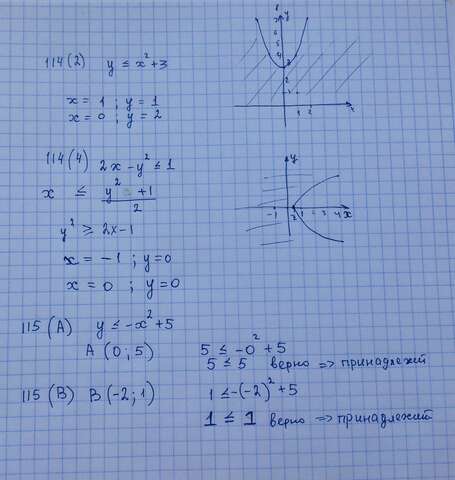 114(2) y ≤ x²+3
x = 1 ; y = 1
x = 0 ; y = 2
y
x
1 2
114(4) 2x - y² ≤ 1
x ≤ y² + 1
2
y² ≥ 2x - 1
x = -1 ; y = 0
x = 0 ; y = 0
y
-1 1 2 3 4 x
115 (A) y ≤ -x² + 5
A (0; 5) 5 ≤ -0² + 5
5 ≤ 5 верно => принадлежит
115 (B) B (-2; 1) 1 ≤ -(-2)² + 5
1 ≤ 1 верно => принадлежит